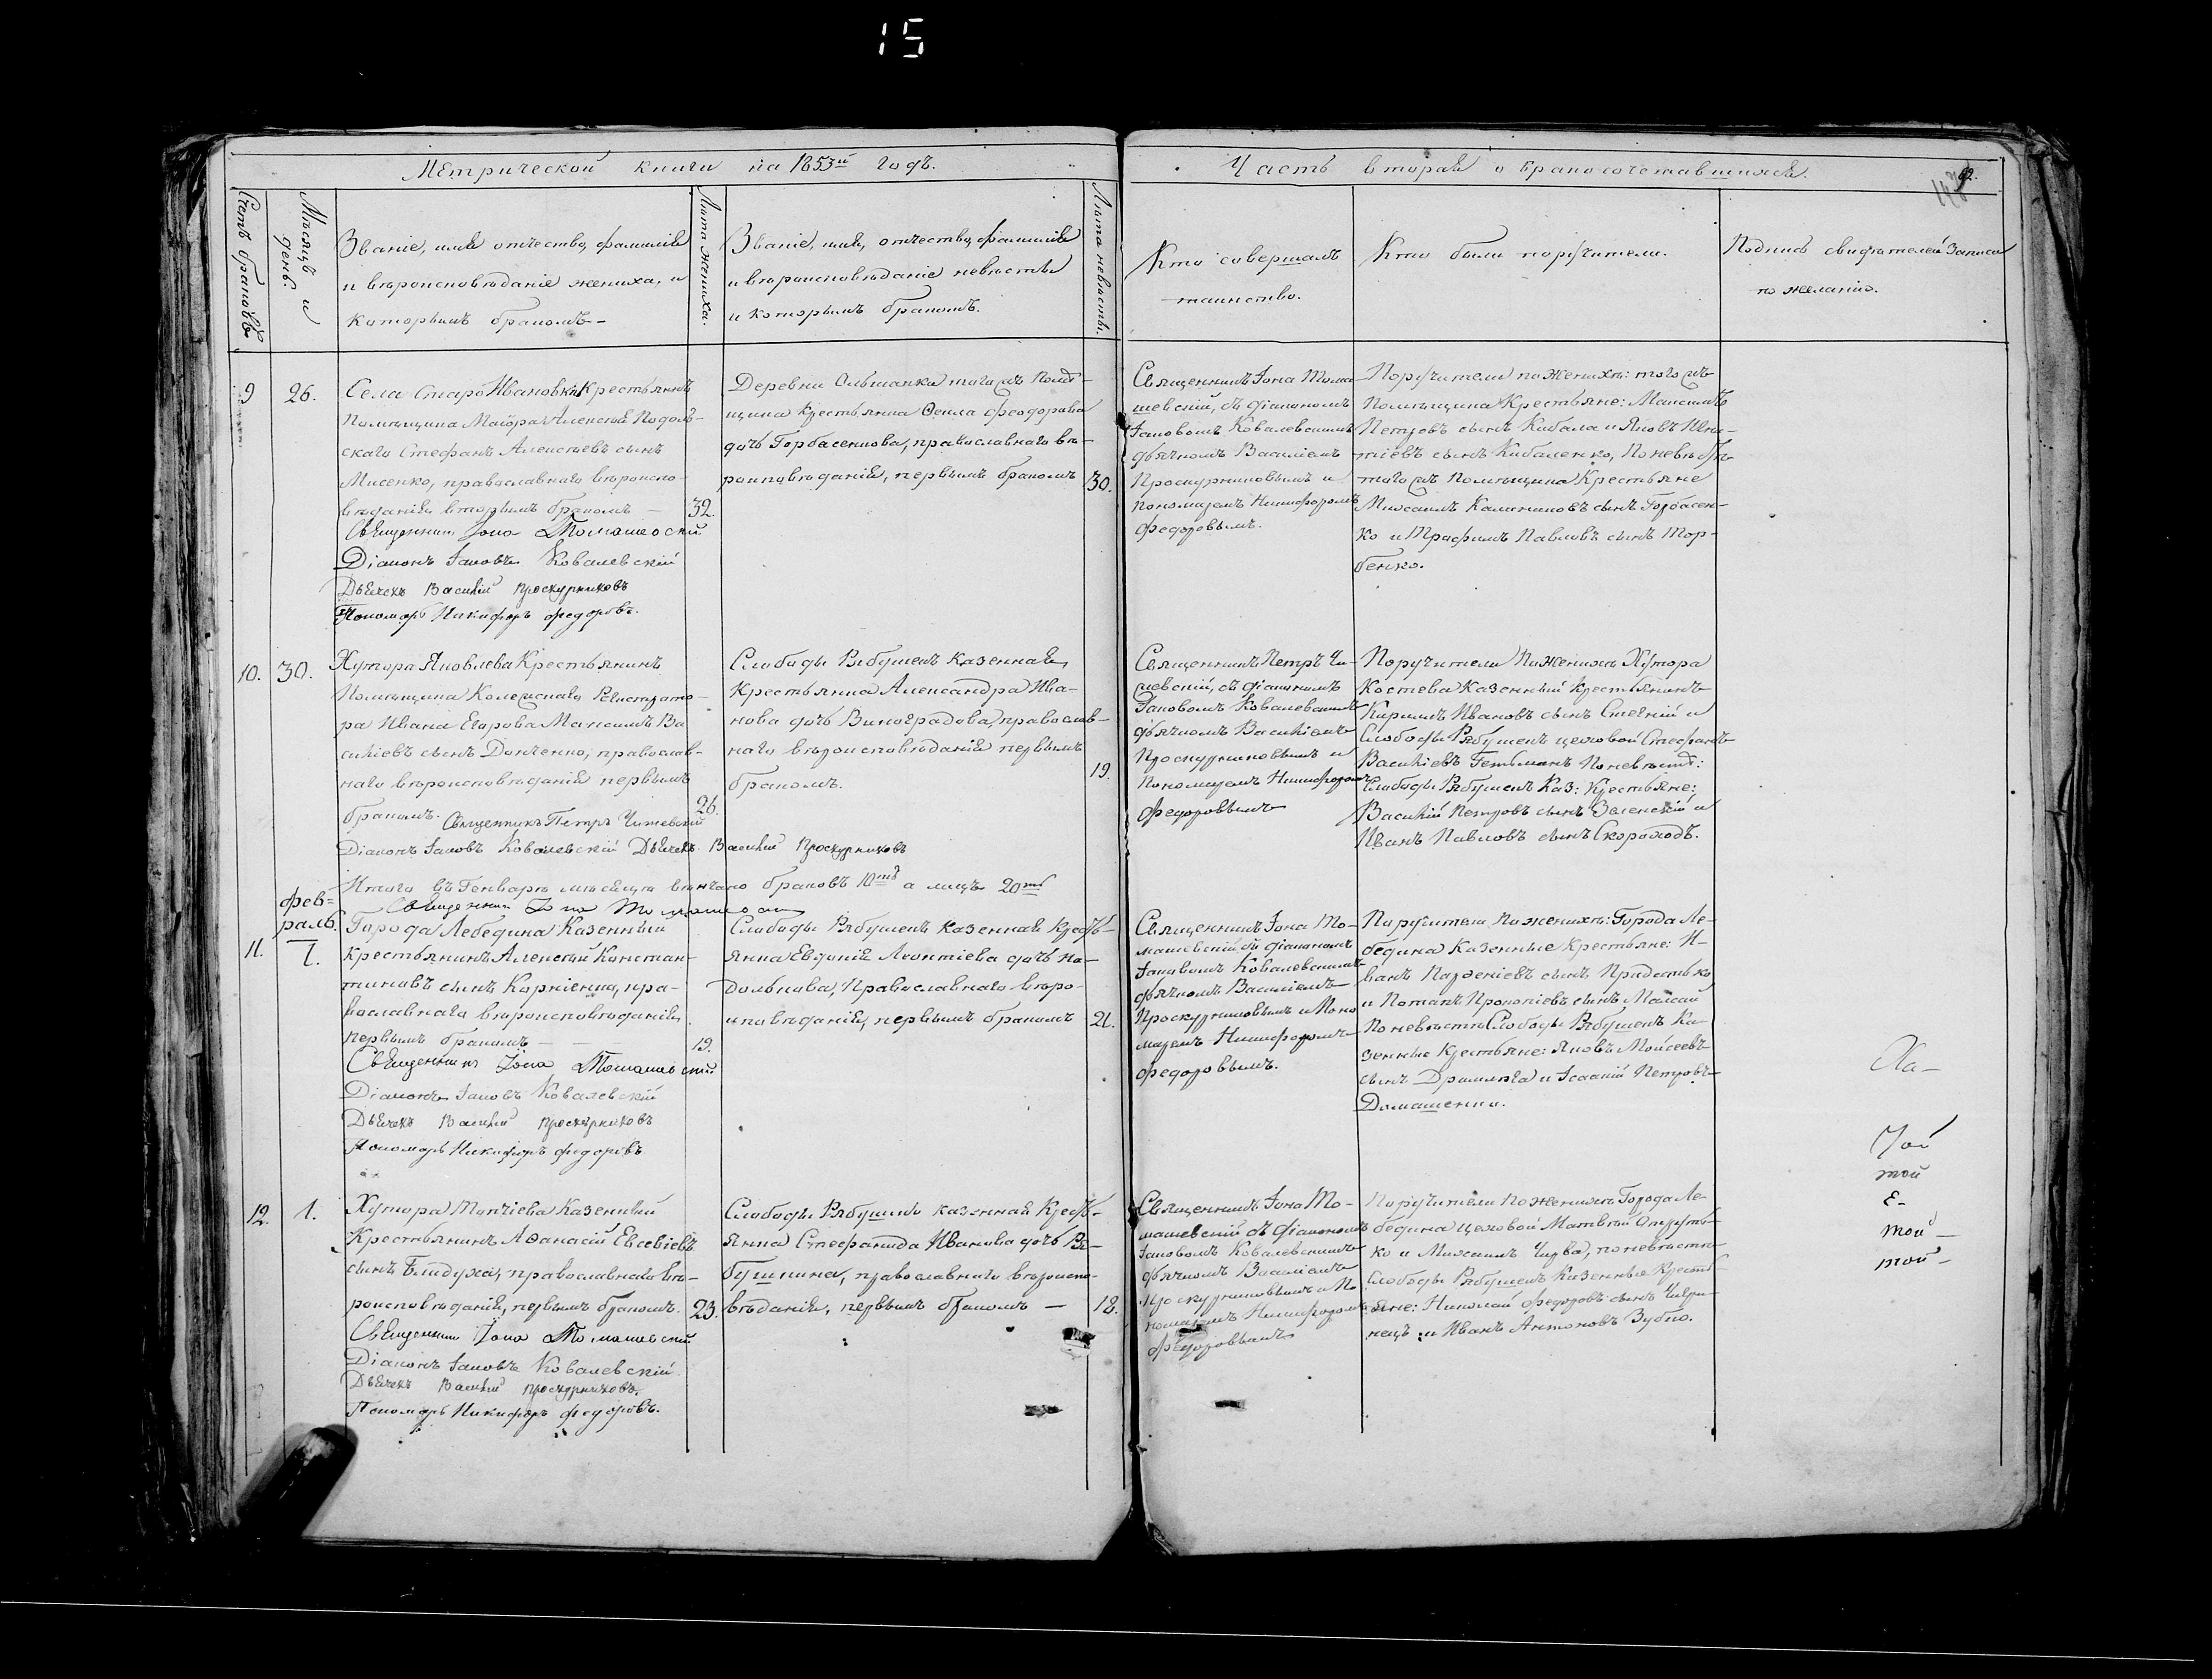 15
Метрической книги на 1853й годъ.
Часть вторая о бракосочетавшихся.
Счетъ браковъ
Мѣсяцъ и день.
Званіе, имя отчество, фамилія
и вѣроисповѣданіе жениха, и
которымъ бракомъ
Лѣта жениха.
Званіе, имя, отчество, фамилія
и вѣроисповѣданіе невѣсты
и которымъ бракомъ.
Лѣта невѣсты.
Кто совершалъ
таинство.
Кто были поручители.
Подпись свидѣтелей записи
по желанію.
9
26.
Села СтароИвановки Крестьянинъ
Помѣщика Маіора Алексѣя Подоль-
скаго Стефанъ Алексѣевъ сынъ
Мисенко, православнаго вѣроиспо-
вѣданія вторымъ бракомъ —
32.
Священникъ Іона Томашевскій
Діаконъ Іаковъ Ковалевскій
Дьячекъ Василій Проскурниковъ
Пономарь Никифоръ Федоровъ.
Деревни Ольшанки того жъ Помѣ-
щика крестьянка Ѳекла Феодорова
дочь Горбасенкова, православнаго вѣ-
роисповѣданія, первымъ бракомъ
30.
Священникъ Іона Тома-
шевскій, съ діакономъ
Іаковомъ Ковалевскимъ
дьячкомъ Василіемъ
Проскурниковымъ и
пономаремъ Никифоромъ
Федоровымъ.
Поручители по женихѣ: того жъ
Помѣщика Крестьяне: Максимъ
Петровъ сынъ Кибала и Яковъ Игна-
тіевъ сынъ Кибаленко, По невѣстѣ
того жъ Помѣщика Крестьяне
Михаилъ Калиниковъ сынъ Горбасен-
ко и Трофимъ Павловъ сынъ Гор-
бенко.
10.
30.
Хутора Яковлева Крестьянинъ
Помѣщика Колежскаго Регистрато-
ра Ивана Егорова Максимъ Ва
силіевъ сынъ Донченко, православ-
наго вѣроисповѣданія первымъ
бракомъ.
26.
Священникъ Петръ Чижевскій
Діаконъ Іаковъ Ковалевскій Дьячекъ Василій Проскурниковъ
Слободы Рябушекъ казенная
Крестьянка Александра Ива-
нова дочь Виноградова, православ-
наго вѣроисповѣданія первымъ
бракомъ.
19.
Священникъ Петръ Чи-
жевскій, съ діакономъ
Іаковомъ Ковалевскимъ
дьячкомъ Василіемъ
Проскурниковымъ и
Пономаремъ Никифоромъ
Федоровымъ
Поручители По женихѣ Хутора
Костева Казенный крестьянинъ
Кирилъ Ивановъ сынъ и
Слободы Рябушекъ цеховой Стефанъ
Василіевъ Гетьманъ По невѣстѣ:
Слободы Рябушекъ Каз: Крестьяне:
Василій Петровъ сынъ Зеленскій и
Иванъ Павловъ сынъ Скороходъ.
Итого въ Генварѣ мѣсяцѣ вѣнчано браковъ 10ть а лицъ 20ть
Священникъ Іона Томашевскій
Фев-
раль.
11.
1.
Города Лебедина Казенный
крестьянинъ Алексѣй Констан-
тиновъ сынъ Корніенко, пра-
вославнаго вѣроисповѣданія
первымъ бракомъ — — —
19.
Священникъ Іона Томашевскій
Діаконъ Іаковъ Ковалевскій
Дьячекъ Василій Проскурниковъ
Пономарь Никифоръ Федоровъ
Слободы Рябушекъ казенная Кресть-
янка Евдокія Леонтіева дочь По-
долькова, Православнаго вѣро-
исповѣданія, первымъ бракомъ
21.
Священникъ Іона То-
машевскій съ діакономъ
Іаковомъ Ковалевскимъ
дьячкомъ Василіемъ
Проскурниковымъ и Поно
маремъ Никифоромъ
Федоровымъ.
Поручители По женихѣ: Города Ле-
бедина казенные крестьяне: И-
ванъ Парфеніевъ сынъ Прядетько
и Потапъ Прокопіевъ сынъ
По невѣстѣ Слободы Рябушекъ Ка-
зенные крестьяне: Яковъ Моісеевъ
сынъ и Ісаакій Петровъ
Домашенко.
Ха-
той
Е-
той -
той -
12.
1.
Хутора Топчіева Казенный
Крестьянинъ Аѳанасій Евсевіевъ
сынъ Блидуха, православнаго вѣ-
роисповѣданія, первымъ бракомъ.
23.
Священникъ Іона Томашевскій
Діаконъ Іаковъ Ковалевскій
Дьячекъ Василій Проскурниковъ.
Пономарь Никифоръ Федоровъ.
Слободы Рябушекъ казенная Кресть-
янка Стефанида Иванова дочь Ря-
бушкина, православнаго вѣроиспо-
вѣданія, первымъ бракомъ —
18.
Священникъ Іона То-
машевскій съ діакономъ
Іаковомъ Ковалевскимъ
дьячкомъ Василіемъ
Проскурниковымъ и По
номаремъ Никифоромъ
Федоровымъ
Поручители По женихѣ Города Ле-
бедина цеховой Матвѣй
ко и Максимъ Чирва, по невѣстѣ
Слободы Рябушекъ Казенные Кресть-
яне: Николай Федоровъ сынъ Чигри-
нецъ и Иванъ Антоновъ Зубко.